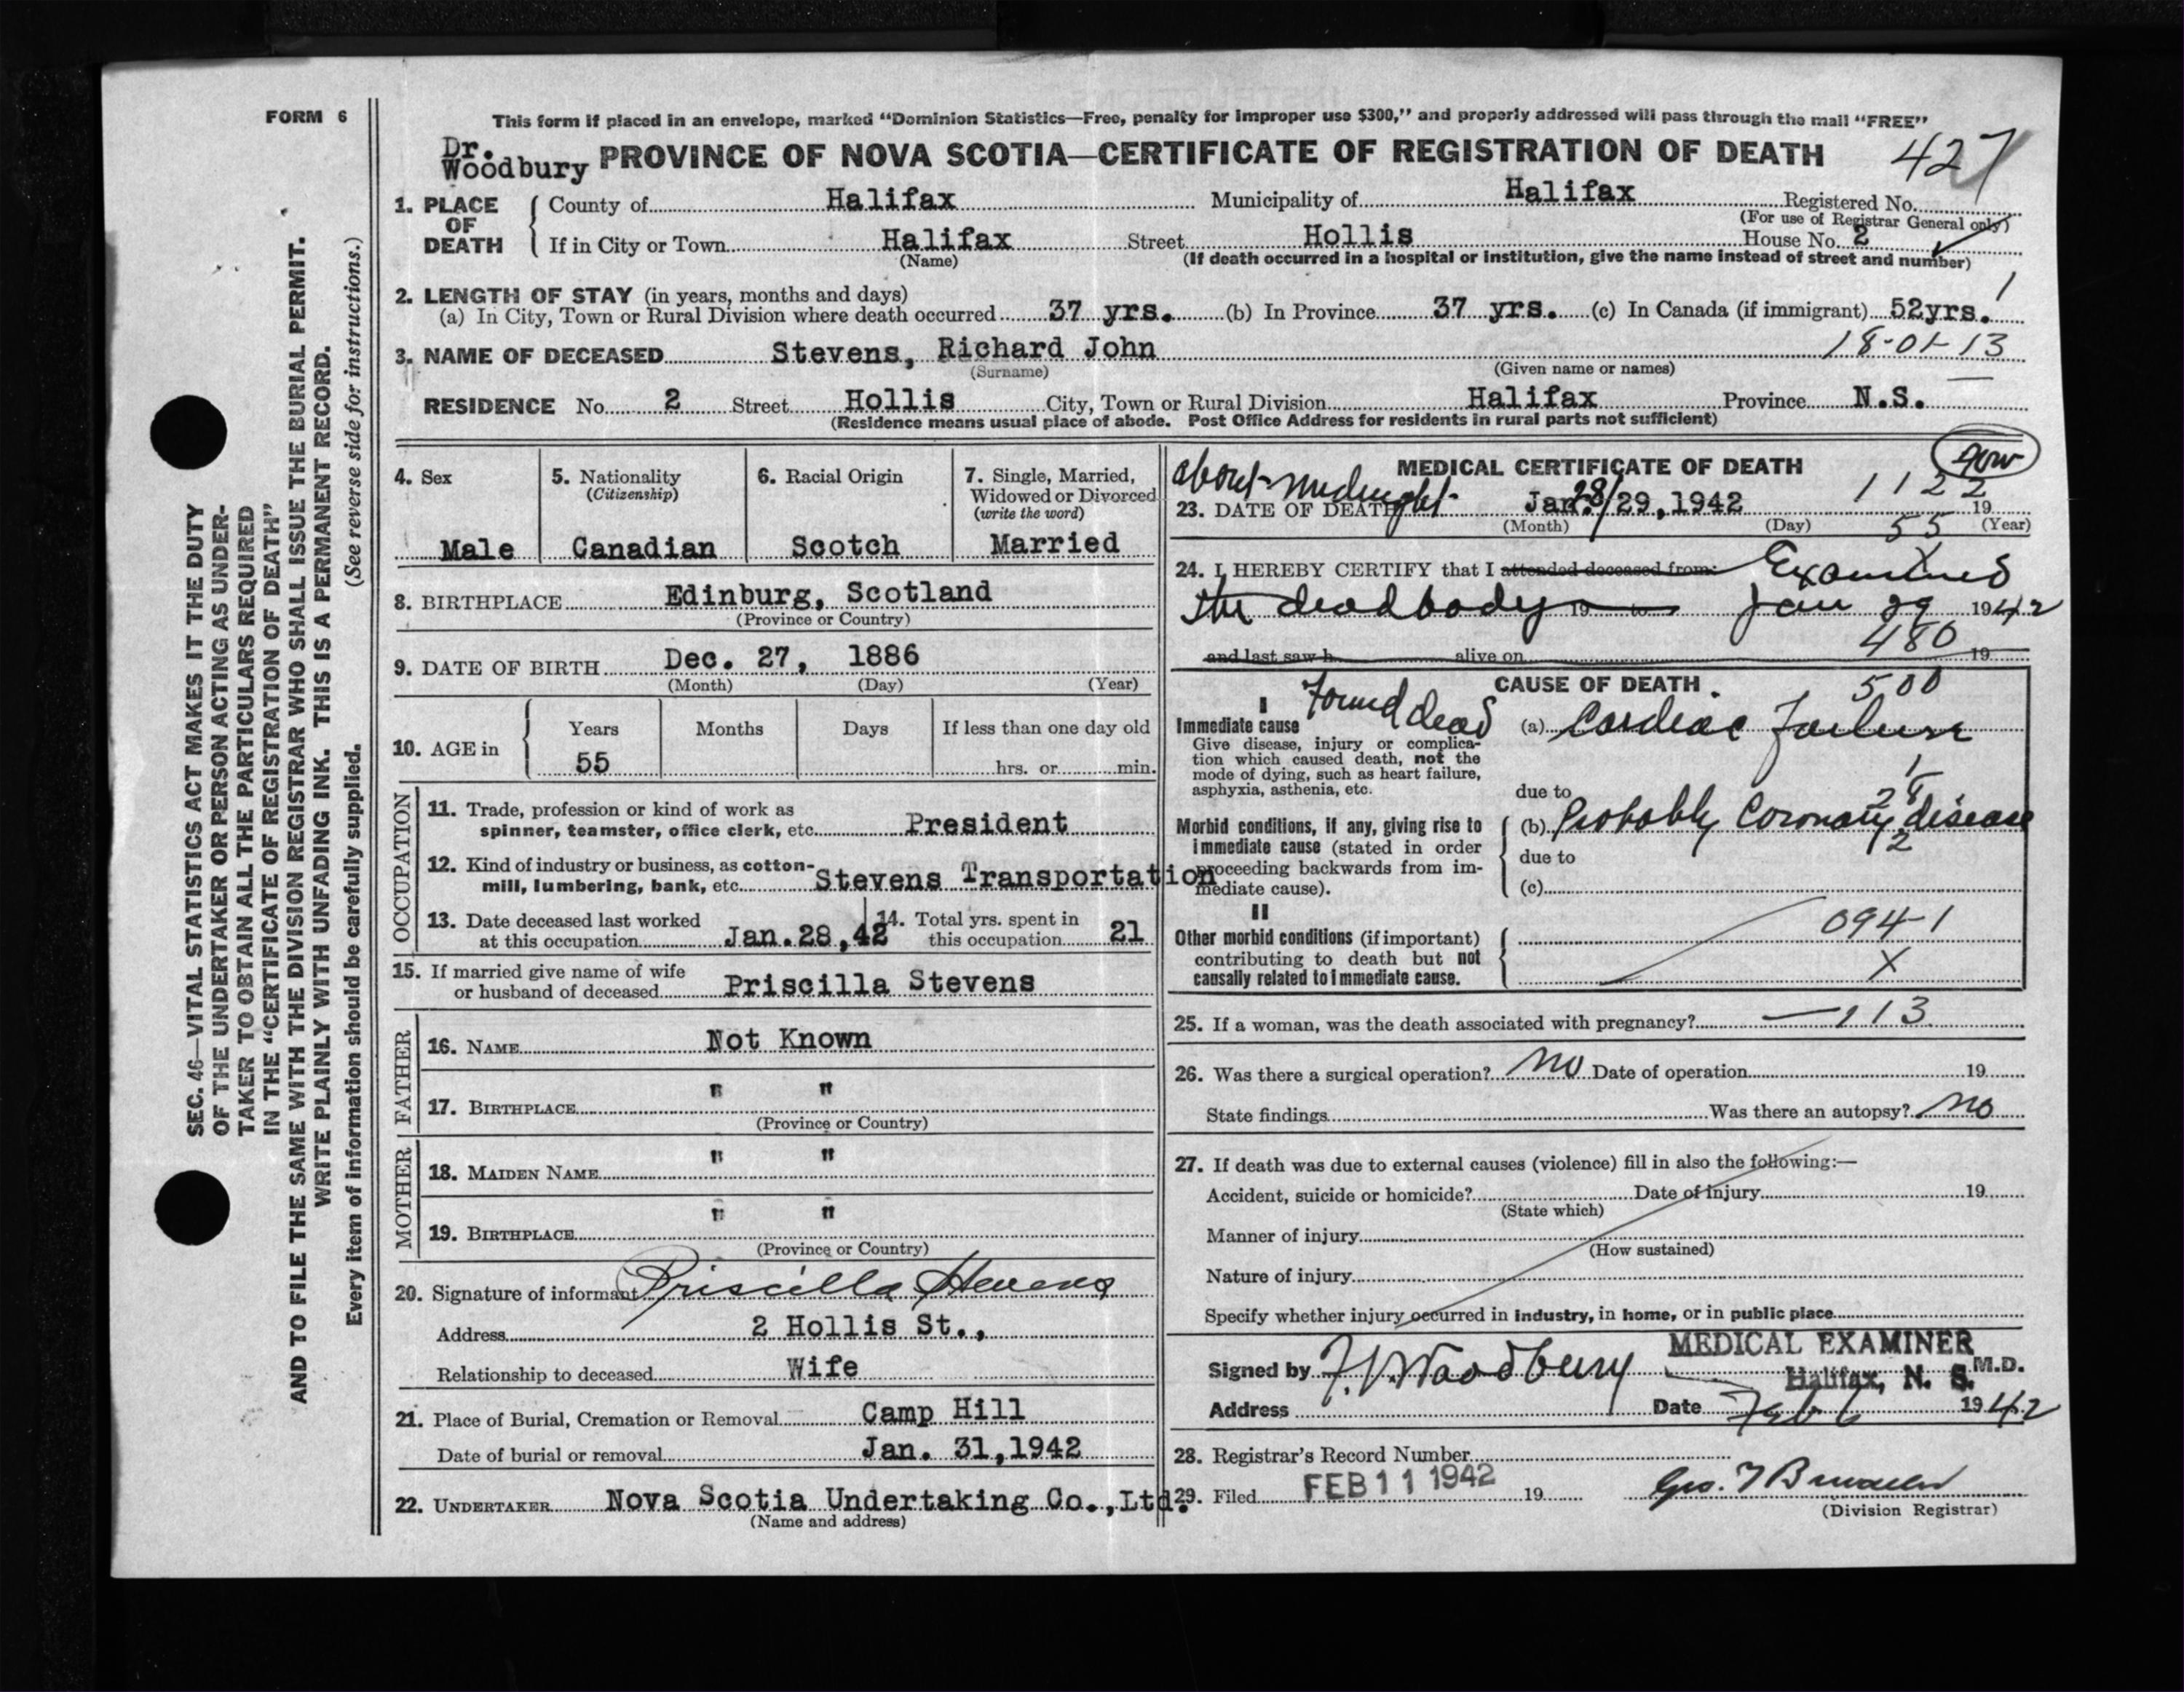 FORM 6
This form if placed in an envelope, marked "Dominion Statistics—Free, penalty for improper use $300," and properly addressed will pass through the mail "FREE"
Dr. Woodbury PROVINCE OF NOVA SCOTIA—CERTIFICATE OF REGISTRATION OF DEATH 427
1. PLACE OF DEATH
County of Halifax Municipality of Halifax Registered No.
(For use of Registrar General only)
If in City or Town Halifax Street Hollis House No. 2
(Name) (If death occurred in a hospital or institution, give the name instead of street and number)
2. LENGTH OF STAY (in years, months and days) 1
(a) In City, Town or Rural Division where death occurred 37 yrs. (b) In Province 37 yrs. (c) In Canada (if immigrant) 52yrs.
3. NAME OF DECEASED Stevens, Richard John 18-01-13
(Surname) (Given name or names)
RESIDENCE No. 2 Street Hollis City, Town or Rural Division Halifax Province N.S.
(Residence means usual place of abode. Post Office Address for residents in rural parts not sufficient)
4. Sex
Male
5. Nationality
(Citizenship)
Canadian
6. Racial Origin
Scotch
7. Single, Married,
Widowed or Divorced
(write the word)
Married
8. BIRTHPLACE Edinburg, Scotland
(Province or Country)
9. DATE OF BIRTH Dec. 27, 1886
(Month) (Day) (Year)
10. AGE in
Years Months Days If less than one day old
55 hrs. or min.
OCCUPATION
11. Trade, profession or kind of work as
spinner, teamster, office clerk, etc. President
12. Kind of industry or business, as cotton-
mill, lumbering, bank, etc. Stevens Transportation
13. Date deceased last worked
at this occupation Jan.28,42
14. Total yrs. spent in
this occupation 21
15. If married give name of wife
or husband of deceased Priscilla Stevens
FATHER
16. NAME Not Known
17. BIRTHPLACE " "
(Province or Country)
MOTHER
18. MAIDEN NAME " "
19. BIRTHPLACE " "
(Province or Country)
20. Signature of informant Priscilla Stevens
Address 2 Hollis St.,
Relationship to deceased Wife
21. Place of Burial, Cremation or Removal Camp Hill
Date of burial or removal Jan. 31,1942
22. UNDERTAKER Nova Scotia Undertaking Co.,Ltd.
(Name and address)
MEDICAL CERTIFICATE OF DEATH
about midnight 1122
23. DATE OF DEATH Jan. 28/29,1942 19
(Month) (Day) (Year)
55
24. I HEREBY CERTIFY that I attended deceased from: Examined
the dead body 19 to Jan 29 1942
480
and last saw h alive on 19
CAUSE OF DEATH
500
I
Immediate cause Found dead (a) Cardiac Failure
Give disease, injury or complica-
tion which caused death, not the
mode of dying, such as heart failure,
asphyxia, asthenia, etc.
due to
Morbid conditions, if any, giving rise to
immediate cause (stated in order
proceeding backwards from im-
mediate cause).
(b) Probably Coronary disease
due to
(c)
II
Other morbid conditions (if important)
contributing to death but not
causally related to immediate cause.
094-1
X
25. If a woman, was the death associated with pregnancy? — 113
26. Was there a surgical operation? No Date of operation 19
State findings Was there an autopsy? No
27. If death was due to external causes (violence) fill in also the following:—
Accident, suicide or homicide? Date of injury 19
(State which)
Manner of injury
(How sustained)
Nature of injury
Specify whether injury occurred in industry, in home, or in public place
MEDICAL EXAMINER
Signed by F.V. Woodbury M.D.
Halifax, N. S.
Address Date Feb 6 1942
28. Registrar's Record Number
29. Filed FEB 11 1942 19
(Division Registrar)
SEC. 46—VITAL STATISTICS ACT MAKES IT THE DUTY
OF THE UNDERTAKER OR PERSON ACTING AS UNDER-
TAKER TO OBTAIN ALL THE PARTICULARS REQUIRED
IN THE "CERTIFICATE OF REGISTRATION OF DEATH"
AND TO FILE THE SAME WITH THE DIVISION REGISTRAR WHO SHALL ISSUE THE BURIAL PERMIT.
WRITE PLAINLY WITH UNFADING INK. THIS IS A PERMANENT RECORD.
Every item of information should be carefully supplied. (See reverse side for instructions.)